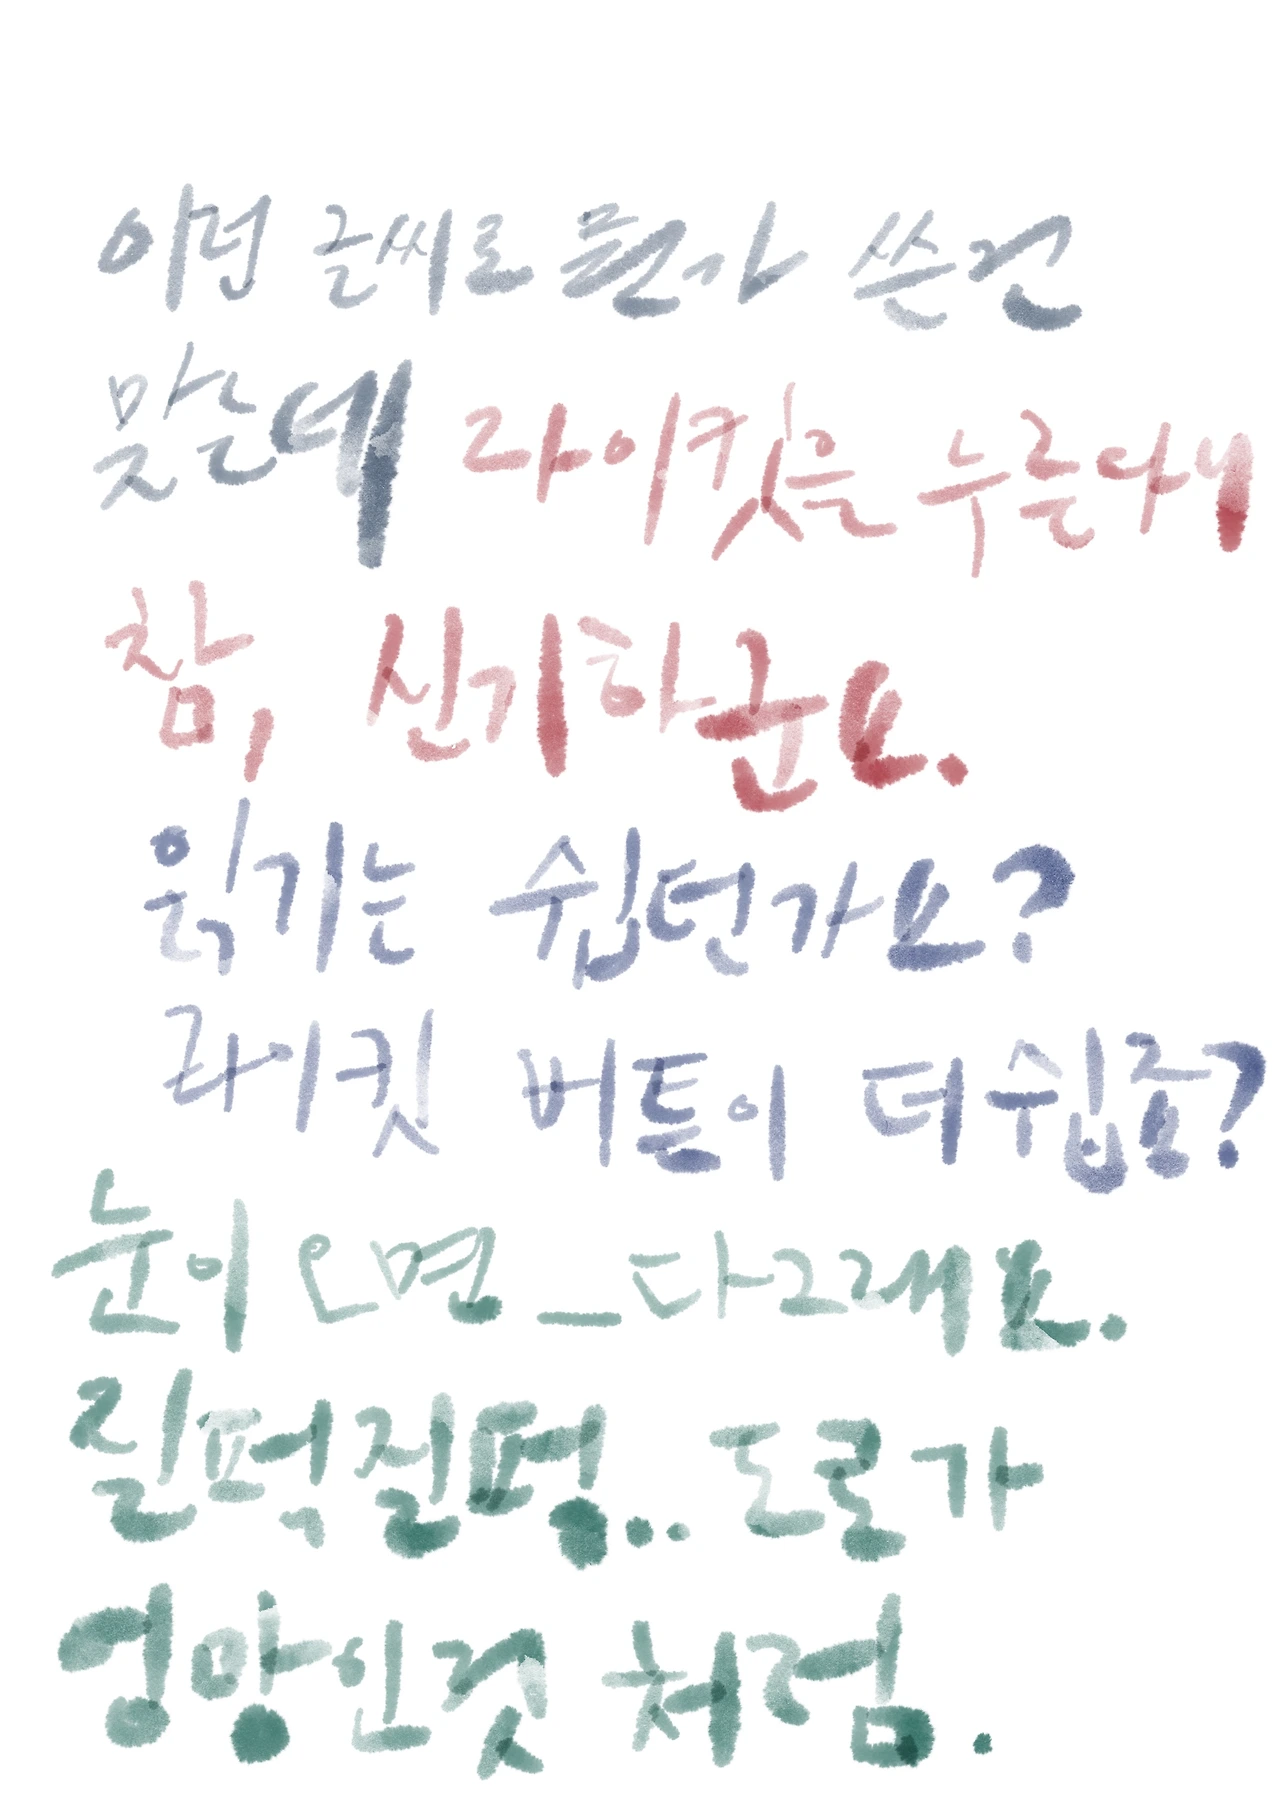 이런 글씨로 뭔가 쓴건
맞는데 라이킷을 누른다니
참, 신기하군요.
읽기는 쉽던가요?
라이킷 버튼이 더 쉽죠?
눈이 오면_다그래요.
질퍽질펑.. 도로가
엉망인것 처럼.